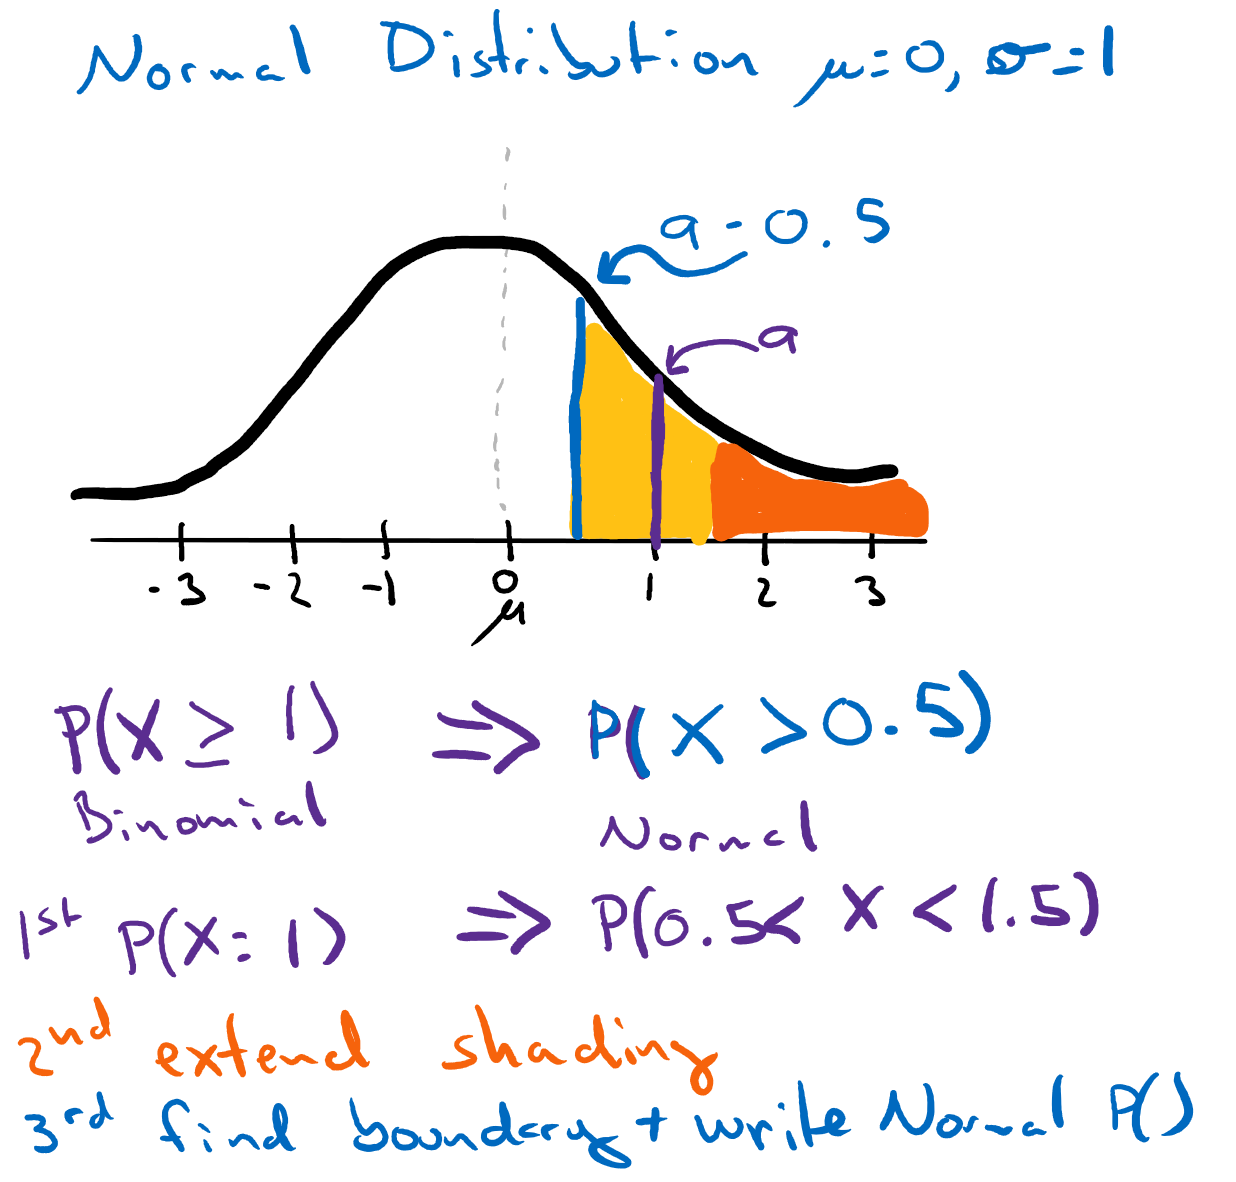 Normal Distribution μ=0, σ=1
a - 0.5
a
-3 -2 -1 0 1 2 3
μ
P(X ≥ 1) ⇒ P(X > 0.5)
Binomial Normal
1st P(X = 1) ⇒ P(0.5 < X < 1.5)
2nd extend shading
3rd find boundary + write Normal P()